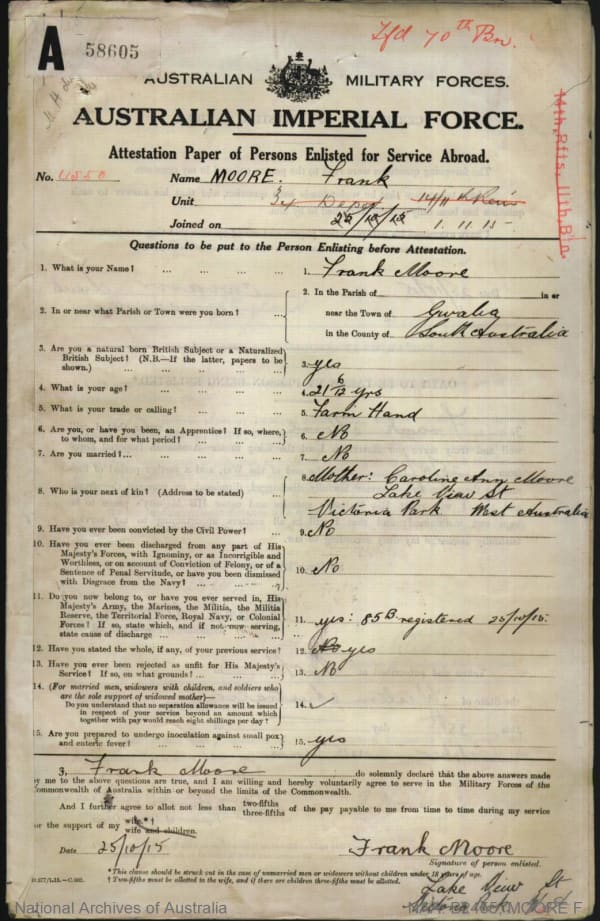 A 58605
Tfd 70th Bn.
AUSTRALIAN MILITARY FORCES.
AUSTRALIAN IMPERIAL FORCE.
Attestation Paper of Persons Enlisted for Service Abroad.
14th, Rfts, 11th, Bn.
No. 4550 Name MOORE. Frank
Unit 34 Depot 14/11 Rein's
Joined on 25/10/15 1.11.15
Questions to be put to the Person Enlisting before Attestation.
1. What is your Name? ... ... ... ... 1. Frank Moore
2. In or near what Parish or Town were you born? ... 2. In the Parish of in or
near the Town of Gwalia
in the County of South Australia
3. Are you a natural born British Subject or a Naturalized
British Subject? (N.B.—If the latter, papers to be
shown.) ... ... ... ... 3. yes
4. What is your age? ... ... ... ... 4. 21 6/12 yrs
5. What is your trade or calling? ... ... ... 5. Farm Hand
6. Are you, or have you been, an Apprentice? If so, where,
to whom, and for what period? ... ... ... 6. No
7. Are you married? ... ... ... ... 7. No
8. Who is your next of kin? (Address to be stated) ... 8. Mother: Caroline Ann Moore
Lake View St
Victoria Park West Australia
9. Have you ever been convicted by the Civil Power? ... 9. No
10. Have you ever been discharged from any part of His
Majesty's Forces, with Ignominy, or as Incorrigible and
Worthless, or on account of Conviction of Felony, or of a
Sentence of Penal Servitude, or have you been dismissed
with Disgrace from the Navy? ... ... ... 10. No
11. Do you now belong to, or have you ever served in, His
Majesty's Army, the Marines, the Militia, the Militia
Reserve, the Territorial Force, Royal Navy, or Colonial
Forces? If so, state which, and if not now serving,
state cause of discharge ... ... ... 11. yes: 85B registered 25/10/15.
12. Have you stated the whole, if any, of your previous service? 12. No yes
13. Have you ever been rejected as unfit for His Majesty's
Service? If so, on what grounds? ... ... 13. No
14. (For married men, widowers with children, and soldiers who
are the sole support of widowed mother)—
Do you understand that no separation allowance will be issued
in respect of your service beyond an amount which
together with pay would reach eight shillings per day? 14. ✓
15. Are you prepared to undergo inoculation against small pox
and enteric fever? ... ... ... ... 15. yes
3, Frank Moore do solemnly declare that the above answers made
by me to the above questions are true, and I am willing and hereby voluntarily agree to serve in the Military Forces of the
Commonwealth of Australia within or beyond the limits of the Commonwealth.
And I further agree to allot not less than two-fifths three-fifths of the pay payable to me from time to time during my service
for the support of my wife*† wife and children.
Date 25/10/15 Frank Moore
Signature of person enlisted.
* This clause should be struck out in the case of unmarried men or widowers without children under 18 years of age.
† Two-fifths must be allotted to the wife, and if there are children three-fifths must be allotted.
Lake View St
National Archives of Australia NAA: B2455, MOORE F